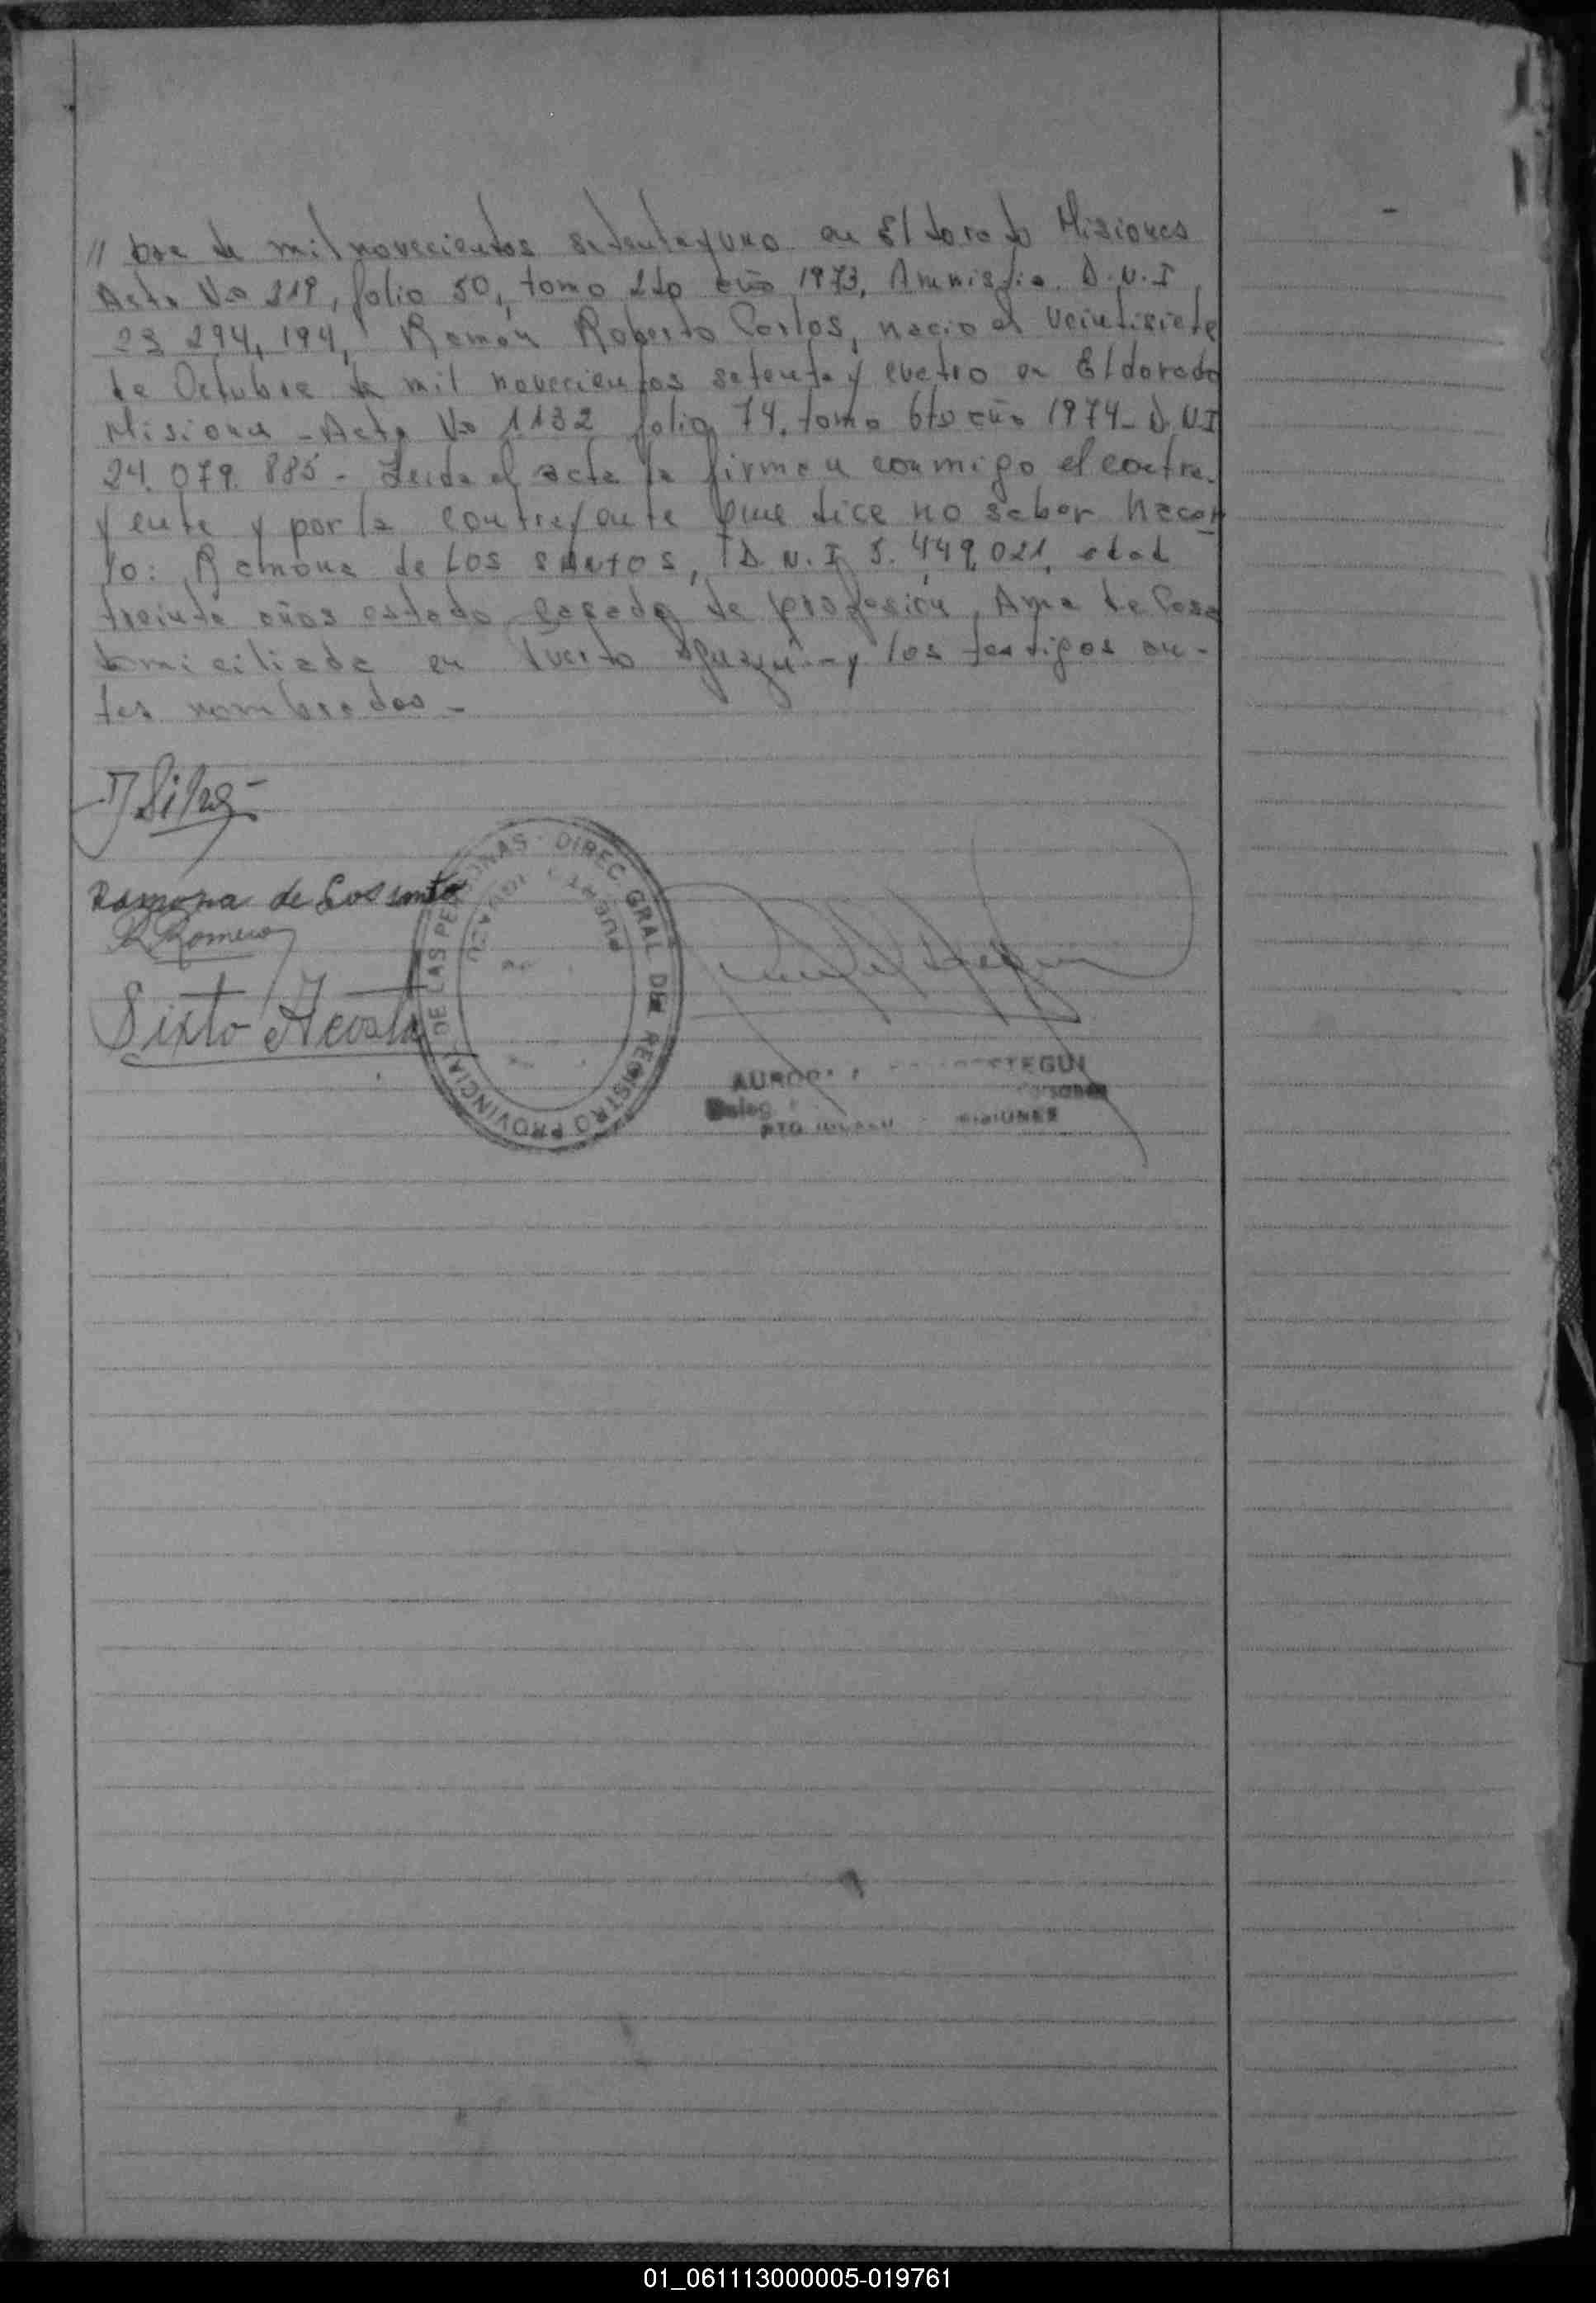 // bre de mil novecientos setenta y uno en Eldorado Misiones
Acta No 219, folio 50, tomo 2do año 1973, Amnistia. D.N.I
23 294, 194, Ramón Roberto Carlos, nacio el veintisiete
de Octubre de mil novecientos setenta y cuatro en Eldorado
Misiones - Acta No 1132 folio 74, tomo 6to año 1974 - D.N.I
24. 079. 885 - Leida el acta la firman conmigo el contra-
yente y por la contrayente que dice no saber hacer
lo: Ramona de Los SANTOS, D.N.I 5. 449,021, edad
treinta años estado casada de profesión, Ama de Casa
domiciliada en Puerto Iguazú - y los testigos an-
tes nombrados -
J Silva
Ramona de Los santo
R Romero
Sixto Acosta
DIREC. GRAL DEL REGISTRO PROVINCIAL DE LAS PERSONAS
PUERTO IGUAZU
MISIONES